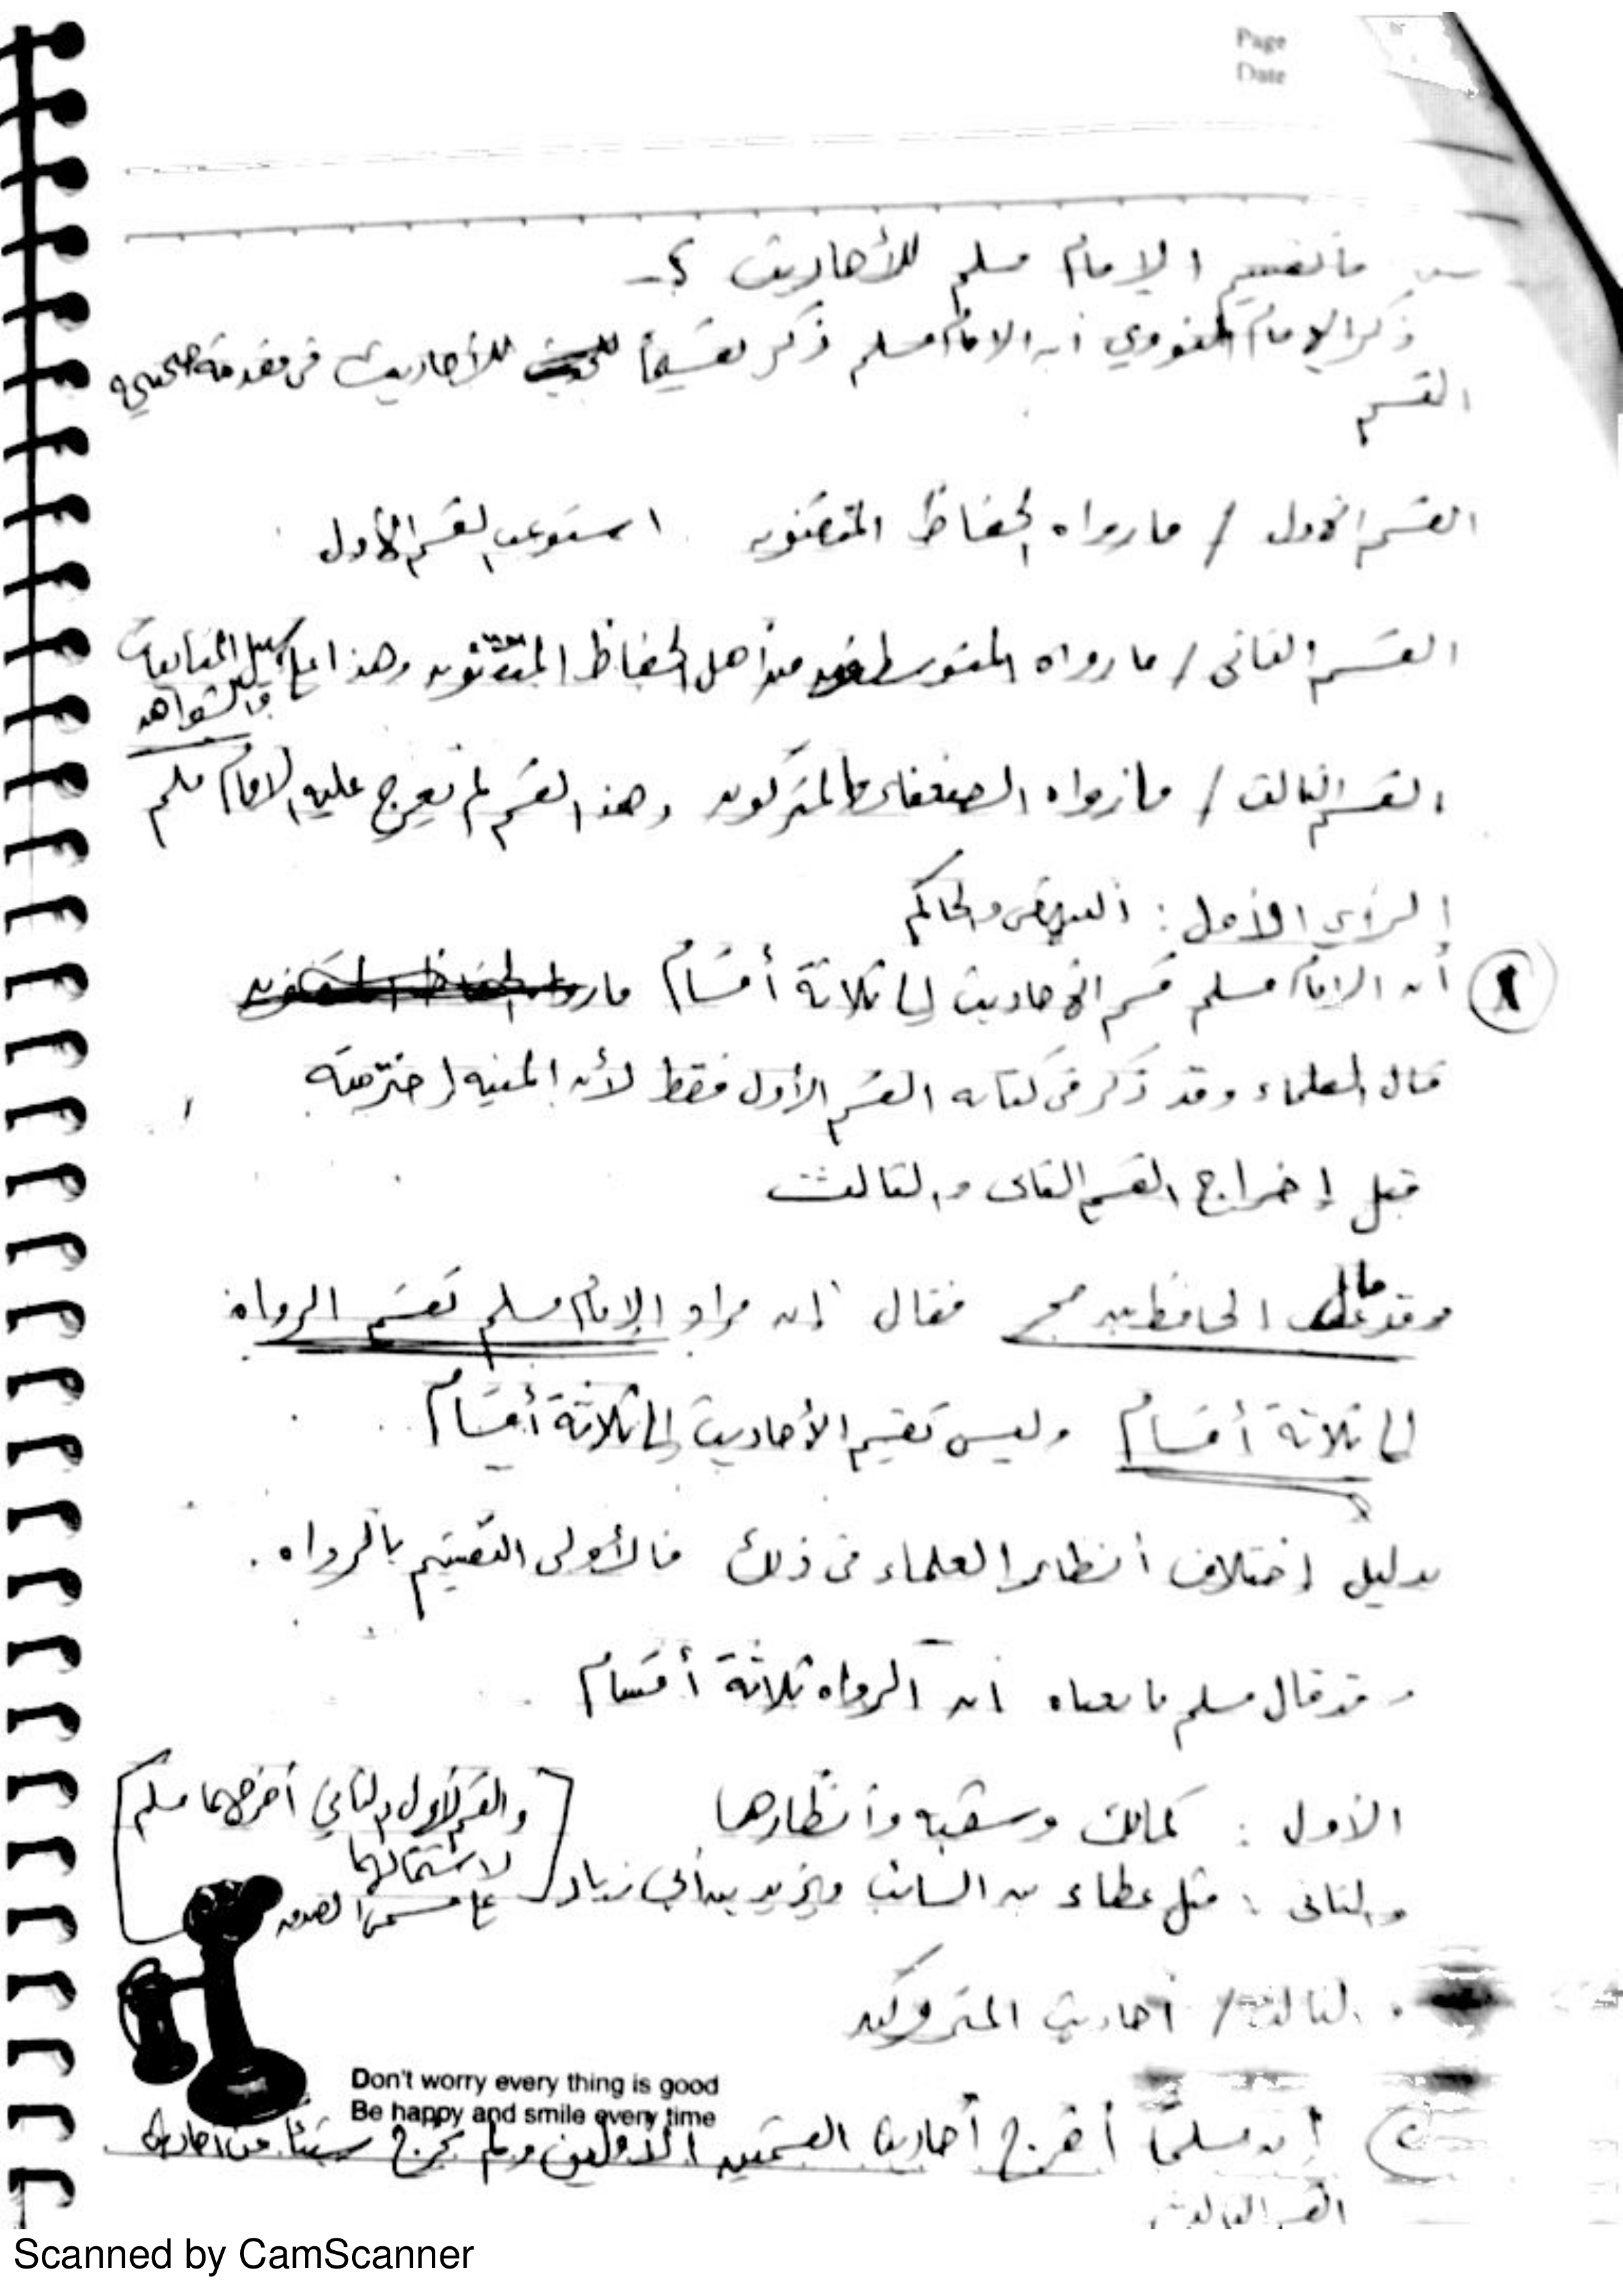 Page
Date
س ما تقسيم الإمام مسلم للأحاديث ؟
ذكر الإمام النووي أن الامام مسلم ذكر تقسيماً للأحاديث في مقدمة صحيحه
القسم
القسم الأول / ما رواه الحفاظ المتقنون استوعب القسم الأول
القسم الثاني / ما رواه المتوسطون من أهل الحفاظ المتقنون وهذا على سبيل المتابعات
والشواهد
القسم الثالث / ما رواه الضعفاء والمتركون وهذا القسم لم يعرج عليه الامام مسلم
الرأي الأول : البيهقي والحاكم
١ أن الامام مسلم قسم الأحاديث إلى ثلاثة أقسام
قال العلماء وقد ذكر في كتابه القسم الأول فقط لأن المنيه اخترمته
قبل إخراج القسم الثاني والثالث
وقد الحافظ بن حجر فقال إن مراد الإمام مسلم تقسيم الرواه
إلى ثلاثة أقسام وليس تقسيم الأحاديث إلى ثلاثة أقسام
بدليل إختلاف أنظار العلماء في ذلك فالأولى التقسيم بالرواه .
وقد قال مسلم ما معناه ان الرواه ثلاثة أقسام
الأول : كمالك وشعبه وأنظارها
والقسم الأول والثاني أخرجهما مسلم
لاشتمالهما
والثاني : مثل عطاء بن السائب ويزيد بن أبي زياد
على مسمى الصدق
الثالث / أحاديث المتروكين
Don't worry every thing is good
Be happy and smile every time
٢ أن مسلماً أخرج أحاديث القسمين الأولين ولم يخرج شيئاً من أحاديث
القسم الثالث